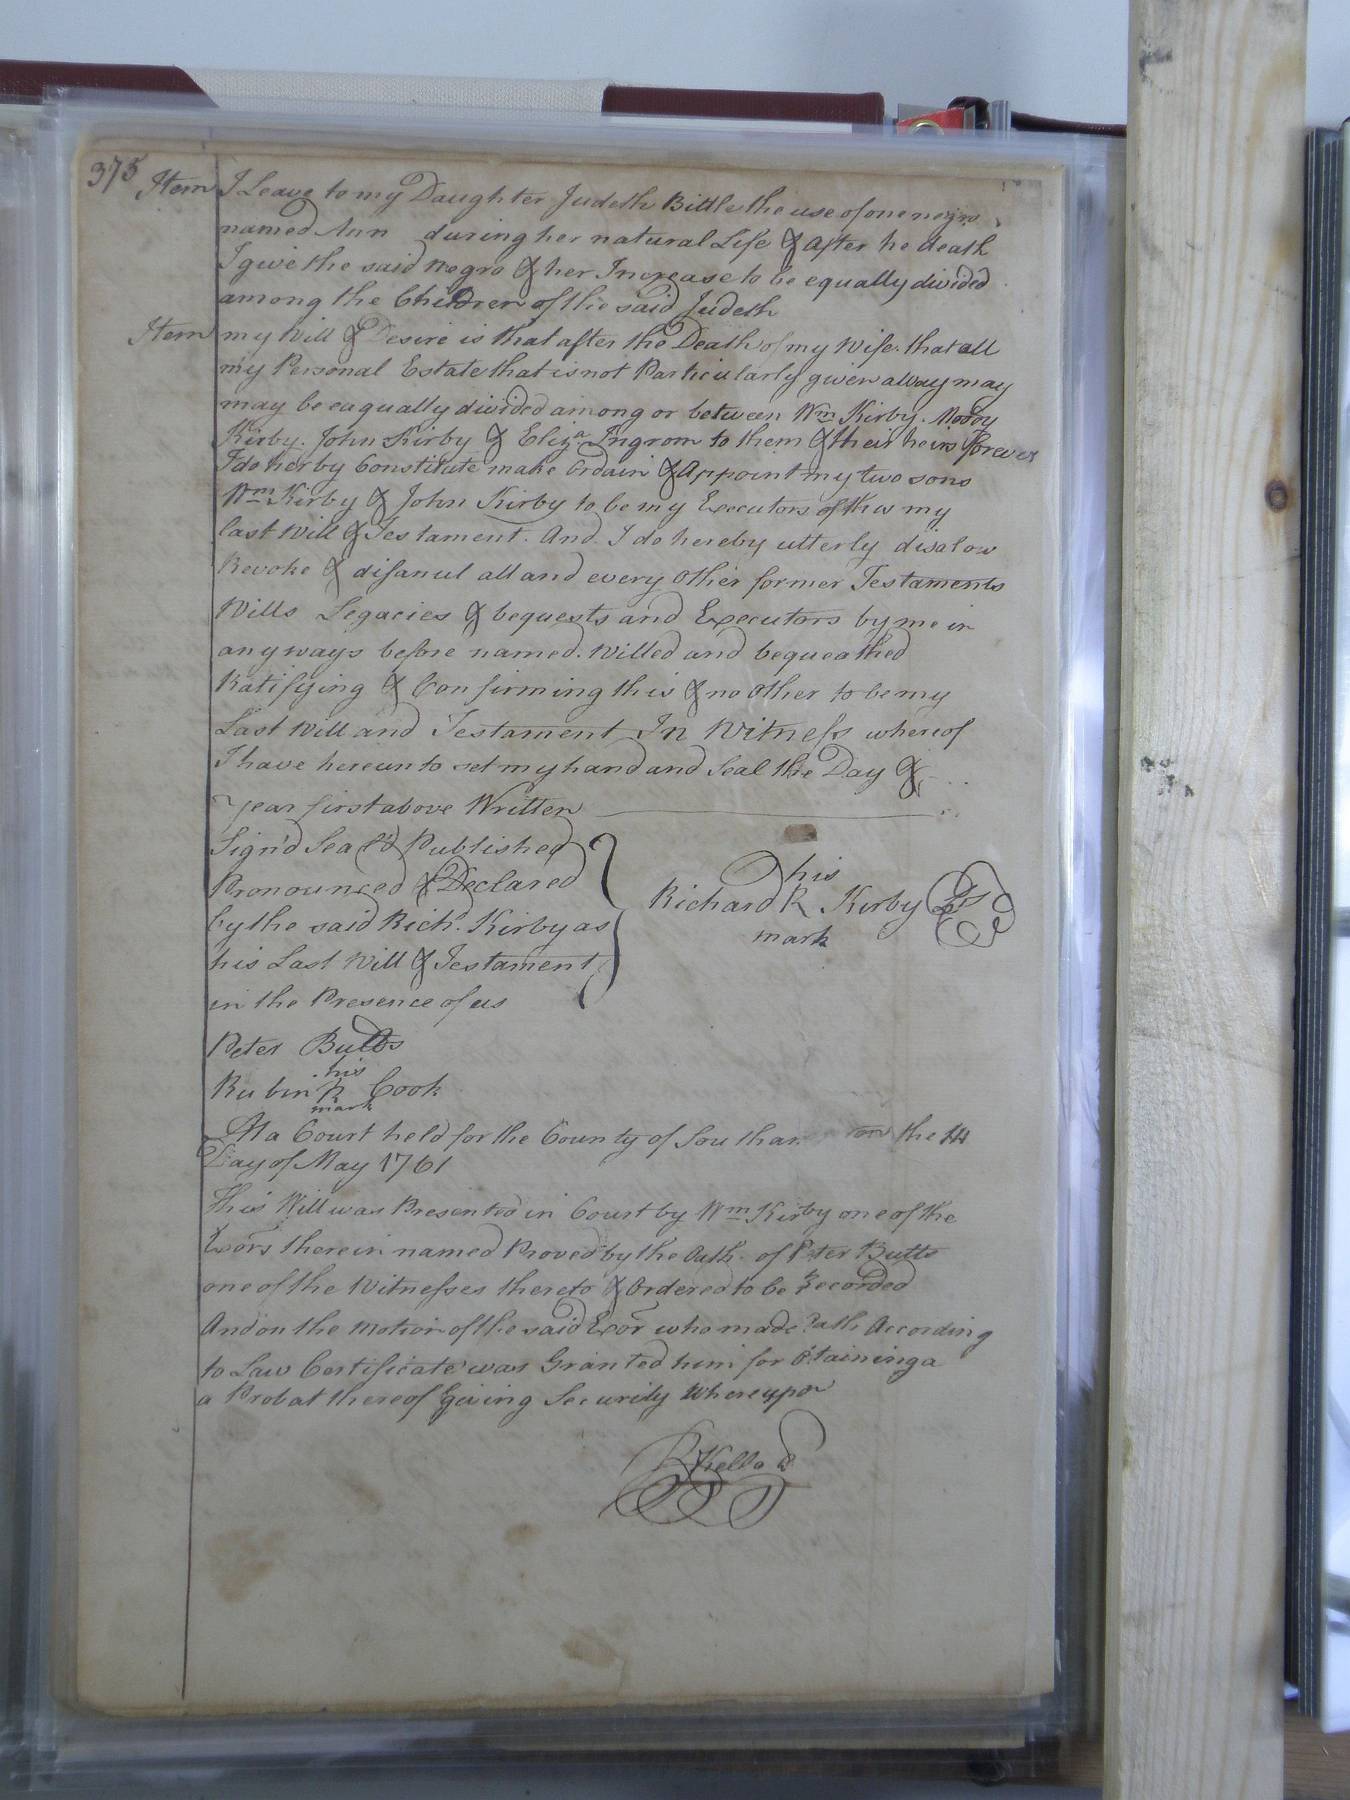 375 Item I Leave to my Daughter Judeth Bittle the use of one negro
named Ann during her natural Life & after he death
I give the said Negro & her Increase to be equally divided
among the Children of the said Judeth
Item my Will & Desire is that after the Death of my Wife. that all
my Personal Estate that is not Particularly given alway may
may be euqually divided among or between Wm Kirby. Moody
Kirby. John Kirby & Eliza Ingrom to them & their heirs forever
I do herby Constitute make Ordain & Appoint my two sons
Wm Kirby & John Kirby to be my Executors of this my
last Will & Testament. And. I do hereby utterly disalow
Revoke & disanul all and every other former Testaments
Wills Legacies & bequests and Executors by me in
any ways before named. Willed and bequeathed
Ratifying & Confirming this & no other to be my
Last Will and Testament In Witness whereof
I have hereunto set my hand and Seal the Day &
year first above Written
Sign'd Seal'd Published
Pronounced & Declared
by the said Richd. Kirby as
his Last Will & Testament
in the Presence of us
his
Richard R Kirby LS
mark
Peter Butts
his
Rubin R Cook
mark
At a Court held for the County of Southam ton the 14
Day of May 1761
This Will was Presented in Court by Wm Kirby one of the
Exors therein named Proved by the Oath of Peter Butts
one of the Witnesses thereto & Ordered to be Recorded
And on the Motion of the said Exor who made Oath According
to Law Certificate was Granted him for Otaining a
a Probat thereof Giving Security Whereupon
R Kello